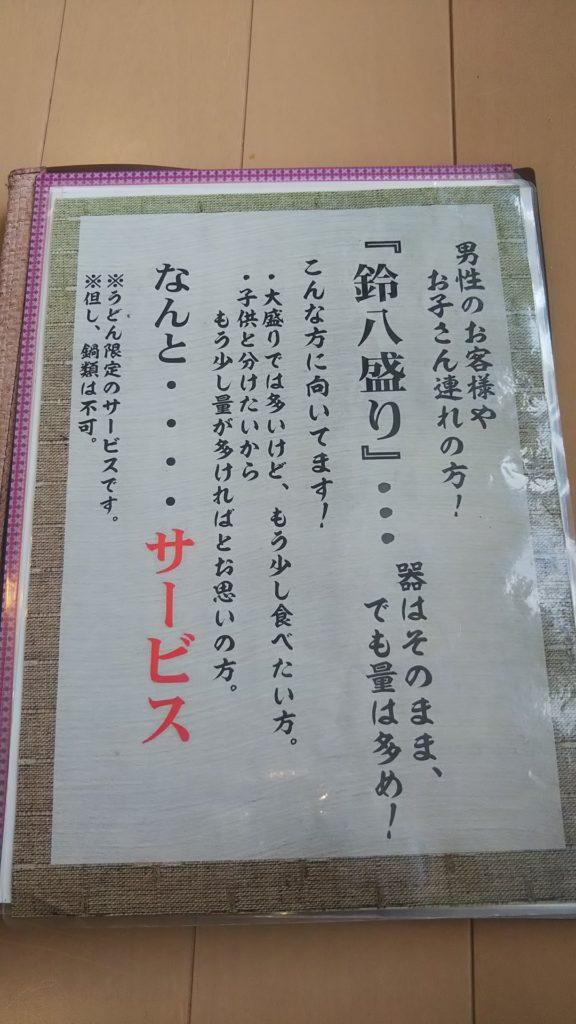 男性のお客様や
お子さん連れの方！
『鈴八盛り』・・・
器はそのまま、
でも量は多め！
こんな方に向いてます！
・大盛りでは多いけど、もう少し食べたい方。
・子供と分けたいから
もう少し量が多ければとお思いの方。
なんと・・・・サービス
※うどん限定のサービスです。
※但し、鍋類は不可。